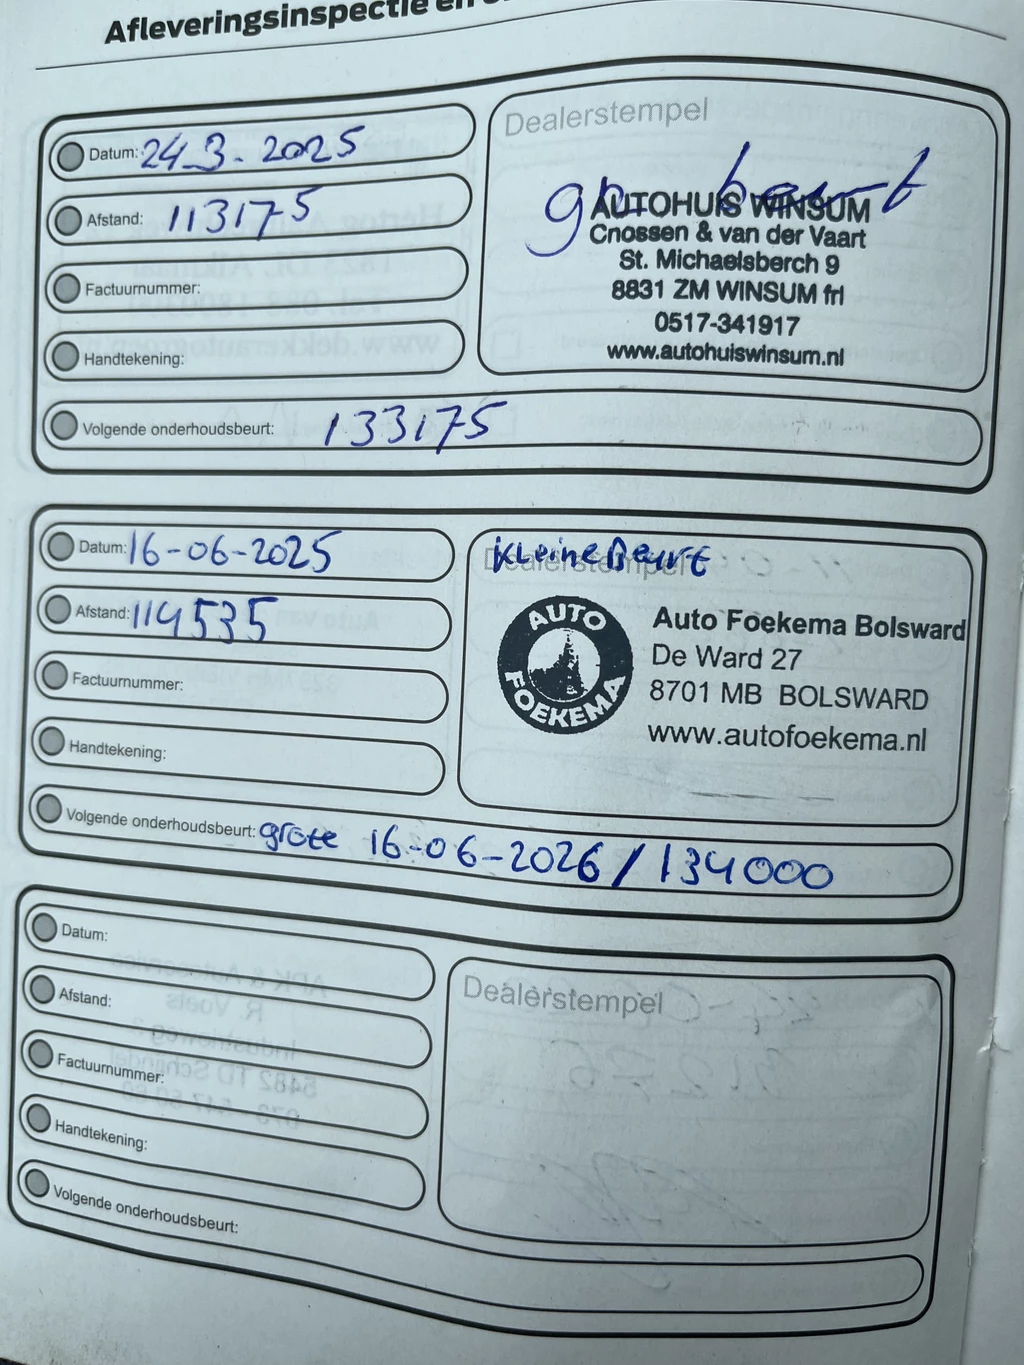 Afleveringsinspectie en
Datum: 24-3-2025
Afstand: 113175
Factuurnummer:
Handtekening:
Volgende onderhoudsbeurt: 133175
Dealerstempel
beurt
AUTOHUIS WINSUM
Cnossen & van der Vaart
St. Michaelsberch 9
8831 ZM WINSUM frl
0517-341917
www.autohuiswinsum.nl
Datum: 16-06-2025
Afstand: 114535
Factuurnummer:
Handtekening:
Volgende onderhoudsbeurt: grote 16-06-2026 / 134000
Dealerstempel
Kleine Beurt
AUTO FOEKEMA
Auto Foekema Bolsward
De Ward 27
8701 MB BOLSWARD
www.autofoekema.nl
Datum:
Afstand:
Factuurnummer:
Handtekening:
Volgende onderhoudsbeurt:
Dealerstempel